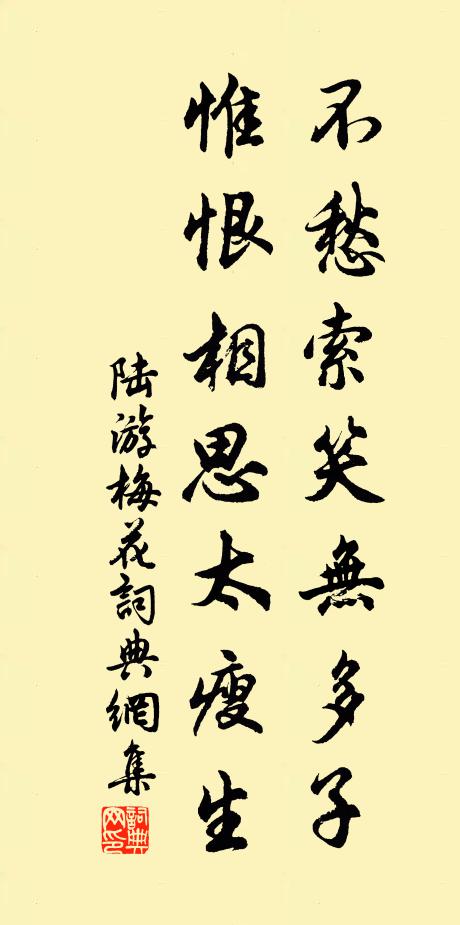 不愁索笑無多子
惟恨相思太瘦生
陆游梅花詞典網集
詞典网印